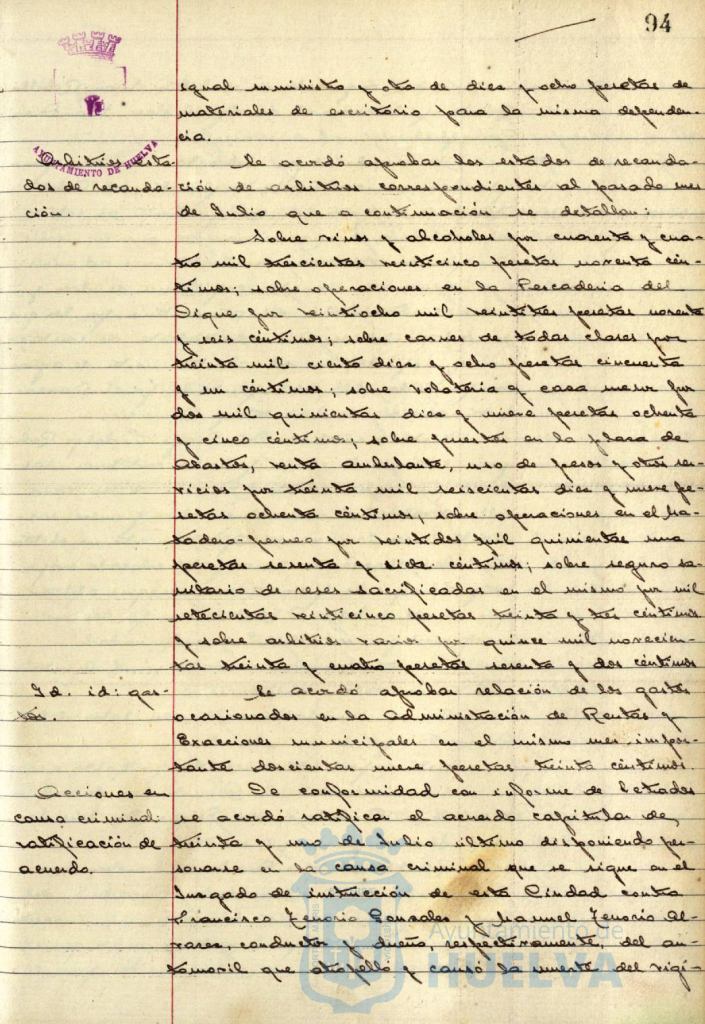 94
igual suministro y otra de diez y ocho pesetas de
materiales de escritorio para la misma dependen-
cia.
AYUNTAMIENTO DE HUELVA
Arbitrios, esta-
dos de recauda-
ción.
Se acordó aprobar los estados de recauda-
ción de arbitrios correspondientes al pasado mes
de Julio que a continuación se detallan:
Sobre vinos y alcoholes por cuarenta y cua-
tro mil trescientas veinticinco pesetas noventa cén-
timos; sobre operaciones en la Pescadería del
Dique por veintiocho mil veintitres pesetas noventa
y seis céntimos; sobre carnes de todas clases por
treinta mil ciento diez y ocho pesetas cincuenta
y un céntimos; sobre volatería y caza menor por
dos mil quinientas diez y nueve pesetas ochenta
y cinco céntimos; sobre puestos en la plaza de
Abastos, venta ambulante, uso de pesos y otros ser-
vicios por treinta mil seiscientas diez y nueve pe-
setas ochenta céntimos; sobre operaciones en el Ma-
tadero-porneo por veintidos mil quinientas una
pesetas sesenta y siete céntimos; sobre seguro sa-
nitario de reses sacrificadas en el mismo por mil
setecientas veinticinco pesetas treinta y tres céntimos
y sobre arbitrios varios por quince mil novecien-
tas treinta y cuatro pesetas sesenta y dos céntimos
Id. id: gas-
tos.
Se acordó aprobar relación de los gastos
ocasionados en la Administración de Rentas y
Exacciones municipales en el mismo mes, impor-
tante doscientas nueve pesetas treinta céntimos.
Acciones en
causa criminal:
ratificación de
acuerdo.
De conformidad con informe de Letrados
se acordó ratificar el acuerdo capitular de
treinta y uno de Julio último disponiendo per-
sonarse en la causa criminal que se sigue en el
Juzgado de instrucción de esta Ciudad contra
Francisco Tenorio Gonzales y Manuel Tenorio Al-
varez, conductor y dueño, respectivamente, del au-
tomovil que atropelló y causó la muerte del vigi-
Ayuntamiento de
HUELVA